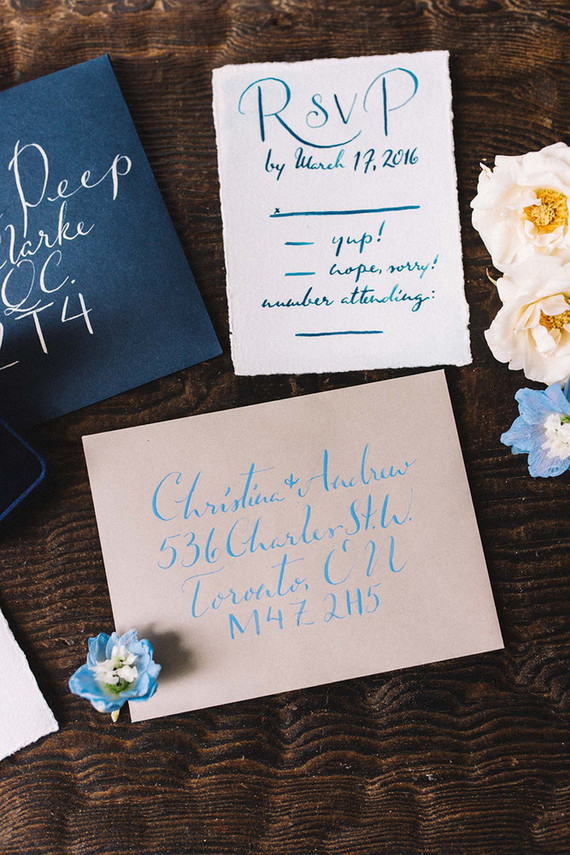 Peep
Clarke
QC.
T4
RSVP
by March 17, 2016
x
yup!
nope, sorry!
number attending:
Christina & Andrew
536 Charles St. W.
Toronto, ON
M4Z 2H5